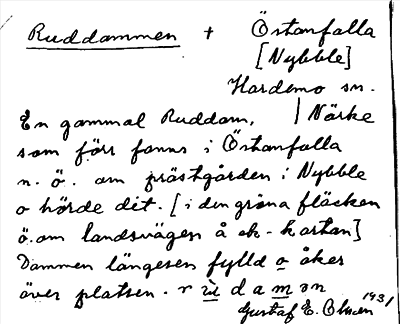 Ruddammen + Östanfalla
[Nybble]
Hardemo sn.
En gammal Ruddam, | Närke
som förr fanns i Östanfalla
n. ö. om prästgården i Nybble
o hörde dit. [i den gröna fläcken
ö. om landsvägen å ek-kartan]
Dammen längesen fylld o åker
över platsen. r u d a m ən
Gustaf E. Olsson 1931